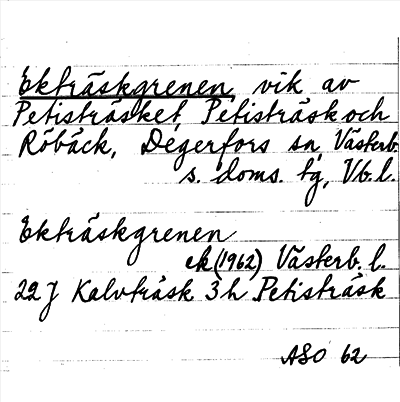 Ekträskgrenen, vik av
Petisträsket, Petisträsk och
Röbäck, Degerfors sn, Västerb.
s. doms. tg, Vb. l.
Ekträskgrenen
ek (1962) Västerb. l.
22 J Kalvträsk 3 h Petisträsk
ASO 62